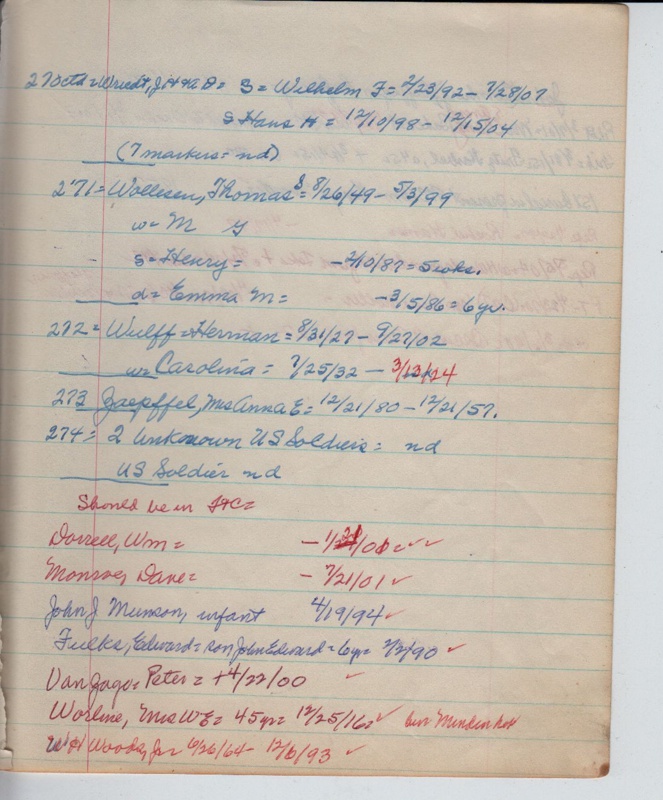 270ctd = Wriedt, J H & A D = S = Wilhelm F = 2/23/92 - 7/28/07
S Hans H = 12/10/98 - 12/15/04
(7 markers = nd)
271 = Wollesen, Thomas S = 8/26/49 - 5/3/99
w = M G
s = Henry = - 2/10/87 = 5 wks.
d = Emma M = - 3/5/86 = 6 yr.
272 = Wulff = Herman = 8/31/27 - 9/27/02
w = Carolina = 7/25/32 - 3/13/14
273 Zaepffel, Mrs Anna E = 12/21/80 - 12/21/57.
274 = 2 Unknown US Soldiers = nd
US Soldier nd
Should be in =
Dorrell, Wm = - /01 =
Monroe, Dave = - 7/21/01
John J Munson, infant 4/19/94
Fulks, Edward = son John Edward = 6 yr = 2/2/90
Van Jago = Peter = + 4/22/00
Worline, Mrs W E = 45 yr = 12/25/16
W H Woods, Jr 6/26/64 - 12/6/93